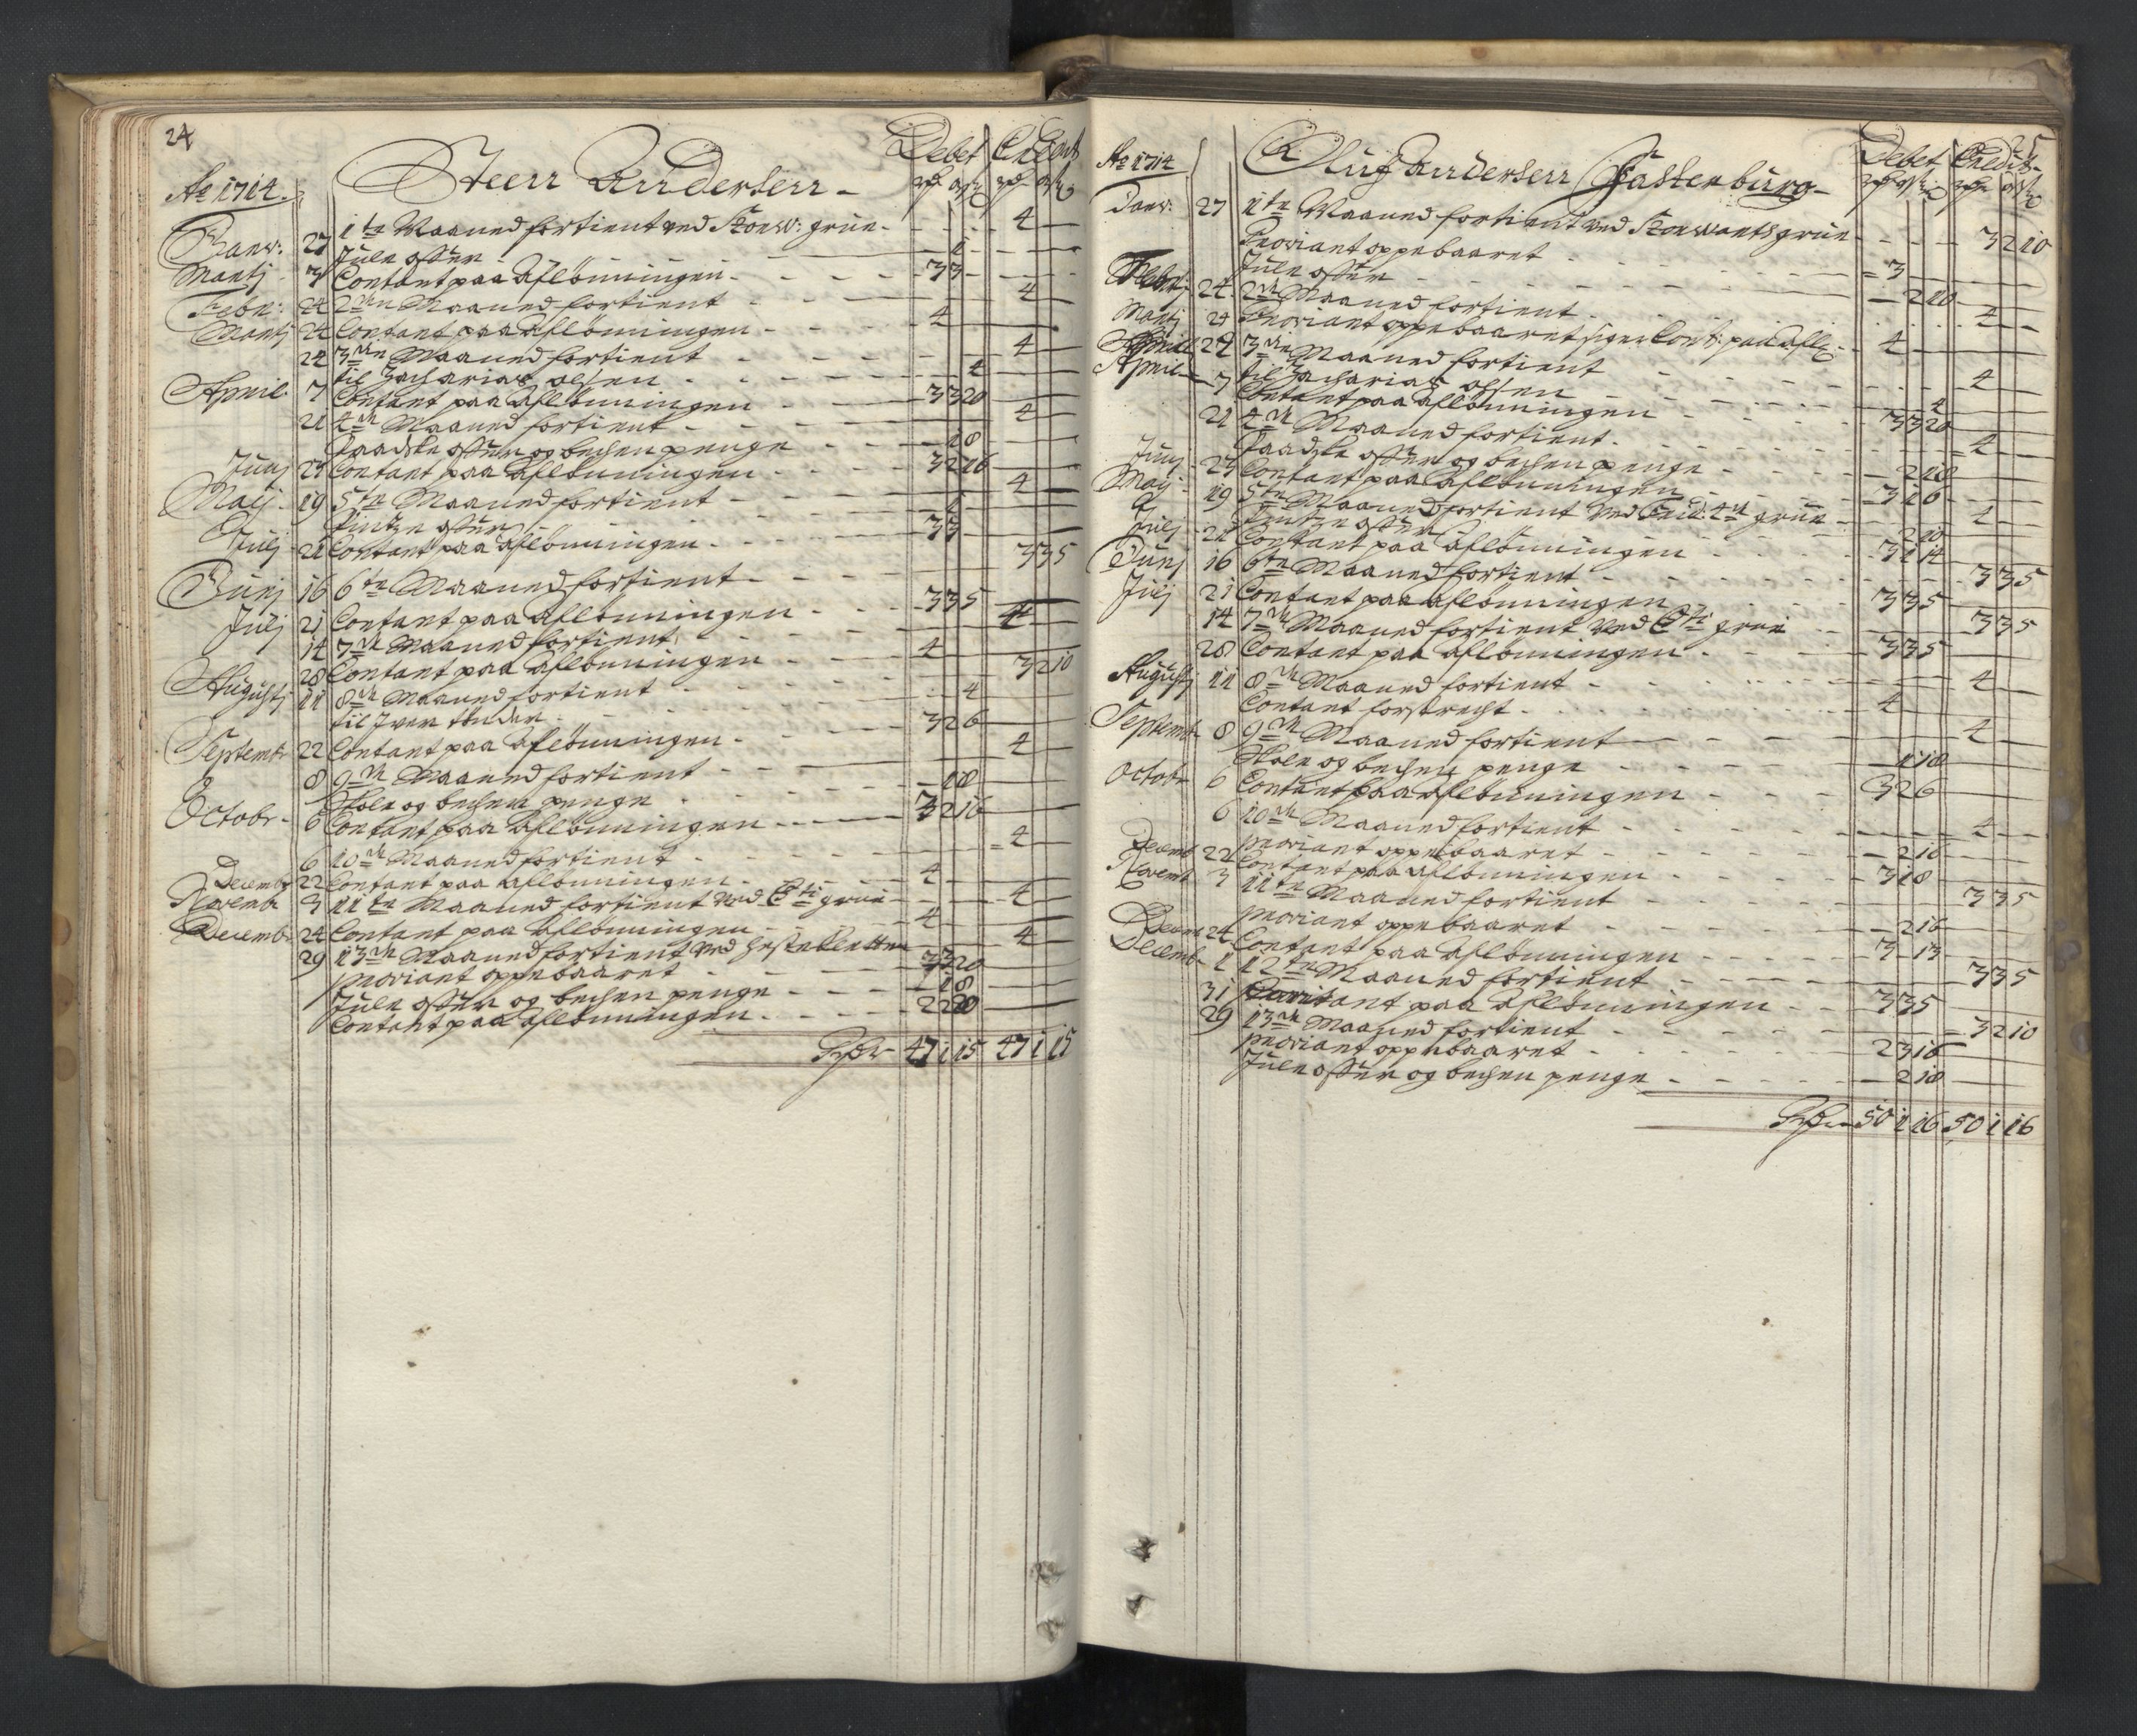 24
Debet Credit
Ao 1714. Steen Andersen
Janv: 27 1te Maaned fortient ved Konw: grue 4
Jule offer 1
Martj 3 Contant paa Aflönningen 3 3
Febr: 24 2den Maaned fortient 4
Martj 24 Contant paa Aflönningen 4
24 3den Maaned fortient 4
til Zacharias olsen 4
April 7 Contant paa Aflönningen 3 3 20
21 4de Maaned fortient 4
Paaske offer og bechen penge 18
Junj 23 Contant paa Aflönningen 3 2 16
Maij 19 5te Maaned fortient 4
Pintze offer 1
Julj 21 Contant paa Aflönningen 3 3
Junj 16 6te Maaned fortient 3 3 5
Julj 21 Contant paa Aflönningen 3 3 5
14 7de Maaned fortient 4
28 Contant paa Aflönningen 4
Augustj 11 8de Maaned fortient 3 2 10
til Iver tönder 4
Septembr 22 Contant paa Aflönningen 3 2 6
8 9de Maaned fortient 4
Skole og bechen penge 18
Octobr 6 Contant paa Aflönningen 3 2 16
6 10de Maaned fortient 4
Decembr 22 Contant paa Aflönningen 4
Novembr 3 11te Maaned fortient ved grue 4
Decembr 24 Contant paa Aflönningen 4
29 13de Maaned fortient ved 4
Proviant oppebaaret 3 20
Jule offer og bechen penge 18
Contant paa Aflönningen 2 2
47 1 15 47 1 15
25
Debet Credit
Ao 1714 Oluf Andersen Fastenburg
Janv: 27 1te Maaned fortient ved Konwants grue 3 2 10
Proviant oppebaaret 3
Jule offer 2 10
Febr: 24 2de Maaned fortient 4
Martj 24 Proviant oppebaaret siger Cont: paa Afl: 4
24 3de Maaned fortient 4
til Zacharias olsen 4
April 7 Contant paa Aflönningen 3 3 20
21 4de Maaned fortient 4
Paaske offer og bechen penge 2 18
Junj 23 Contant paa Aflönningen 3 1 6
Maij 19 5te Maaned fortient ved Frid: 4de grue 4
Pintze offer 2 10
Julj 21 Contant paa Aflönningen 3 1 14
Junj 16 6te Maaned fortient 3 3 5
Julj 21 Contant paa Aflönningen 3 3 5
14 7de Maaned fortient ved grue 3 3 5
28 Contant paa Aflönningen 3 3 5
Augustj 11 8de Maaned fortient 4
Contant forstrecht 4
Septembr 8 9de Maaned fortient 4
Skole og bechen penge 1 18
Octobr 6 Contant paa Aflönningen 3 2 6
6 10de Maaned fortient 4
Proviant oppebaaret 2 16
Decembr 22 Contant paa Aflönningen 3 1 8
Novembr 3 11te Maaned fortient 3 3 5
Proviant oppebaaret 2 16
Decembr 24 Contant paa Aflönningen 3 13
Decembr 1 12te Maaned fortient 3 3 5
31 Contant paa Aflönningen 3 3 5
29 13de Maaned fortient 3 2 10
Proviant oppebaaret 2 3 16
Jule offer og bechen penge 2 18
50 1 16 50 1 16